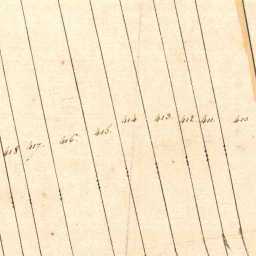 418
417.
416.
415.
414
413.
412
411.
410